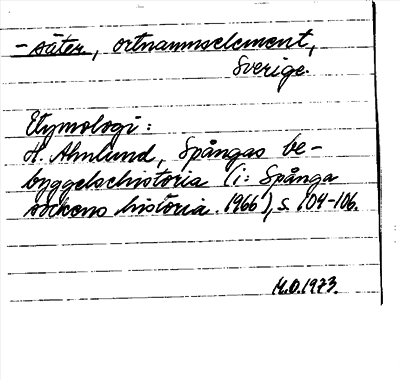 -säter, ortnamnselement,
Sverige.
Etymologi:
H. Ahnlund, Spångas be-
byggelsehistoria (i: Spånga
sockens historia. 1966), s. 104-106.
M.O.1973.